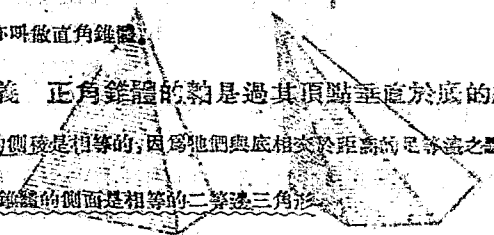 亦叫做直角錐體。
義 正角錐體的軸是過其頂點垂直於底的
的側稜是相等的,因爲牠們與底相交於距高的足等遠之
錐體的側面是相等的二等邊三角形